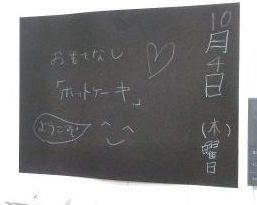 10月4日(木)曜日
おもてなし
「ホットケーキ」
ようこそ!